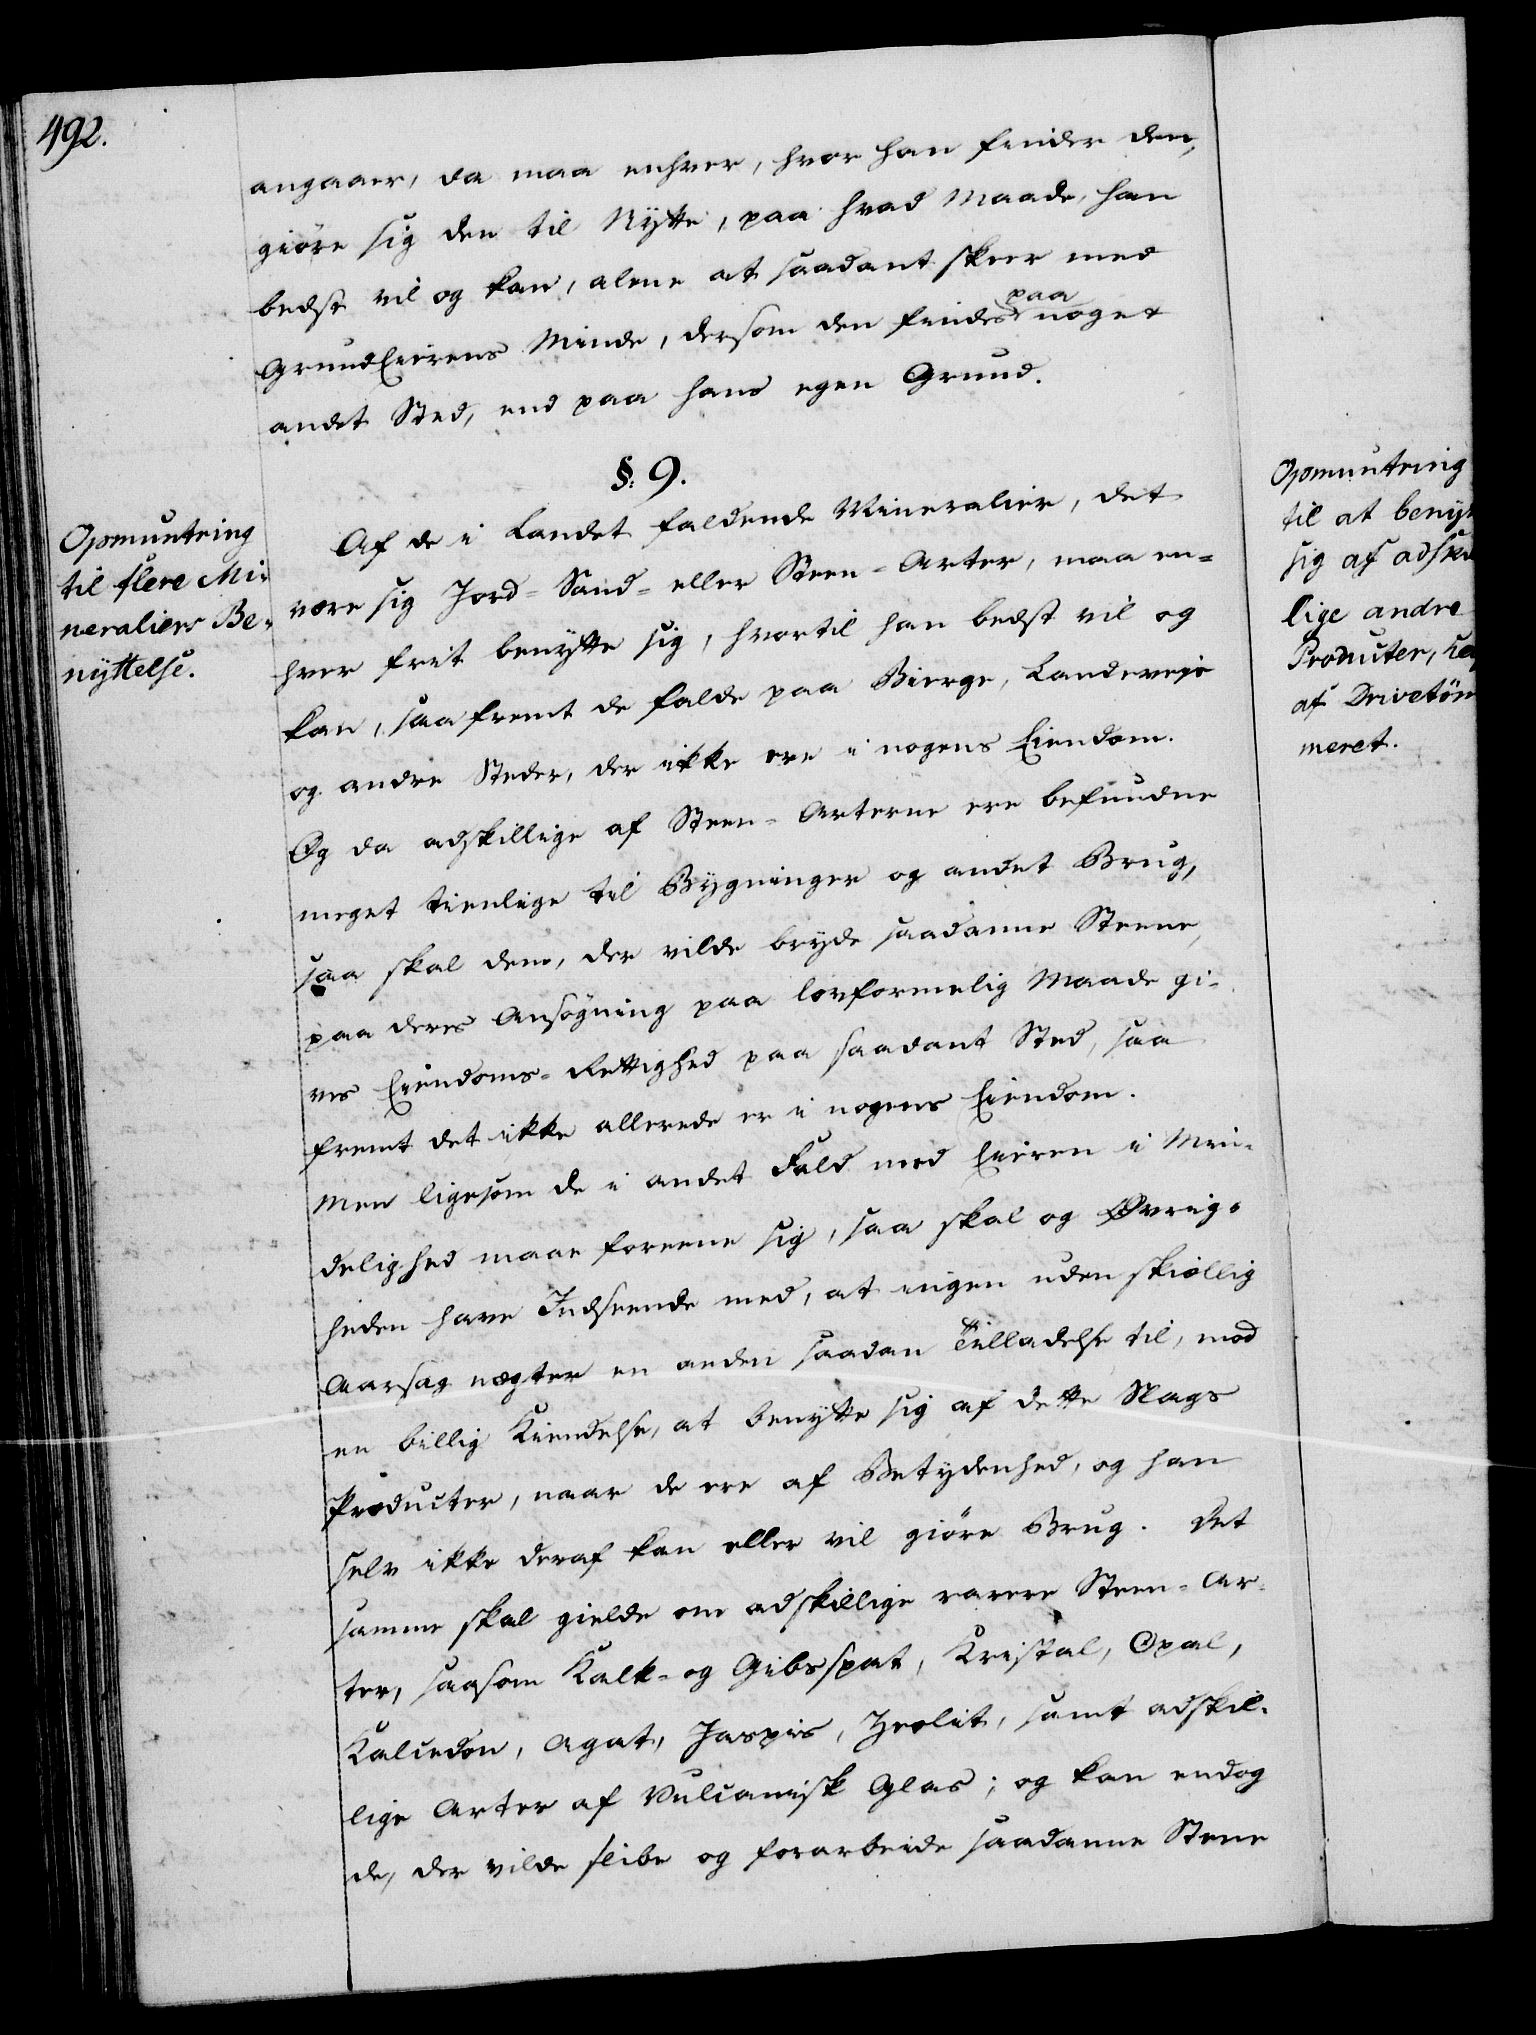 492.
angaaer, da maa enhver, hvor han finder den,
giöre sig den til Nytte, paa hvad Maade, han
bedst vil og kan, alene at saadant skeer med
GrundEierens Minde, dersom den findes paa noget
andet Sted, end paa hans egen Grund.
§. 9.
Opmuntring
til flere Mi-
neraliers Be-
nyttelse.
Af de i Landet faldende Mineralier, det
være sig Jord- Sand- eller Steen-Arter, maa en-
hver frit benytte sig, hvortil han bedst vil og
kan, saafremt de falde paa Bierge, Landeveje
og andre Steder, der ikke ere i nogens Eiendom.
Og da adskillige af Steen-Arterne ere befundne
meget tienlige til Bygninger og andet Brug,
saa skal dem, der vilde bryde saadanne Steene,
paa deres Ansögning paa lovformelig Maade gi-
ves Eiendoms-Rettighed paa saadant Sted, saa
fremt det ikke allerede er i nogens Eiendom.
Men ligesom de i andet Fald med Eieren i Min-
delighed maae foreene sig, saa skal og Øvrig-
heden have Indseende med, at ingen uden skiellig
Aarsag nægter en anden saadan Tilladelse til, mod
en billig Kiendelse, at benytte sig af dette Slags
Producter, naar de ere af Betydenhed, og han
selv ikke deraf kan eller vil giöre Brug. Det
samme skal gielde om adskillige rarere Steen-Ar-
ter, saasom Kalk- og Gibsspat, Kristal, Opal,
Kalcedon, Agat, Jaspis, Zeolit, samt adskil-
lige Arter af Vulcanisk Glas; og kan endog
de, der vilde slibe og forarbeide saadanne Stene
Opmuntring
til at beny
sig af adski
lige andre
Producter,
af Drivetöm
meret.